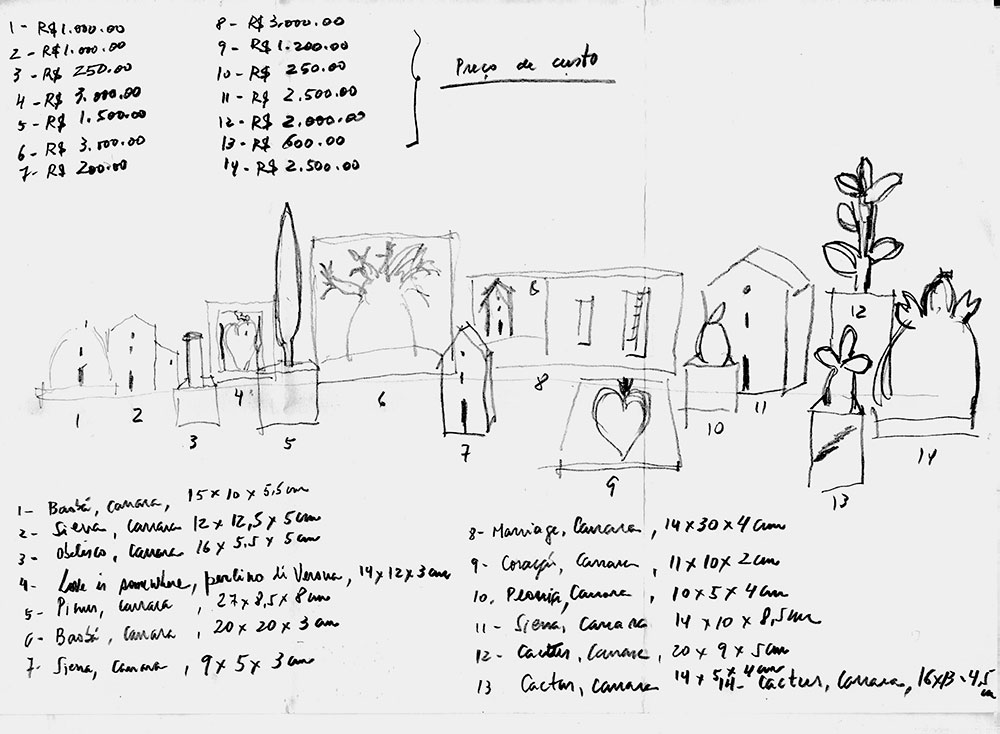 1- R$1.000.00
2- R$1.000.00
3- R$ 250.00
4- R$ 3.000.00
5- R$ 1.500.00
6- R$ 3.000.00
7- R$ 200.00
8- R$3.000.00
9- R$ 1.200.00
10- R$ 250.00
11- R$ 2.500.00
12- R$ 2.000.00
13- R$ 600.00
14- R$ 2.500.00
Preço de custo
6
12
1
2
3
4
5
6
7
8
9
10
11
13
14
1- Baobá, carrara, 15 x 10 x 5,5 cm
2- Siena, carrara 12 x 12,5 x 5 cm
3- Obelisco, carrara 16 x 5.5 x 5 cm
4- Love is somewhere, perlino di Verona, 14 x 12 x 3 cm
5- Pinus, carrara, 27 x 8,5 x 8 cm
6- Baobá, carrara, 20 x 20 x 3 cm
7- Siena, carrara, 9 x 5 x 3 cm
8- Marriage, Carrara, 14 x 30 x 4 cm
9- Coração, Carrara, 11 x 10 x 2 cm
10. Peonia, Carrara, 10 x 5 x 4 cm
11- Siena, Carrara 14 x 10 x 8,5 cm
12- Cactus, Carrara, 20 x 9 x 5 cm
13 Cactus, Carrara 14 x 5 x 4 cm
14- Cactus, Carrara, 16 x 13 x 4,5 cm